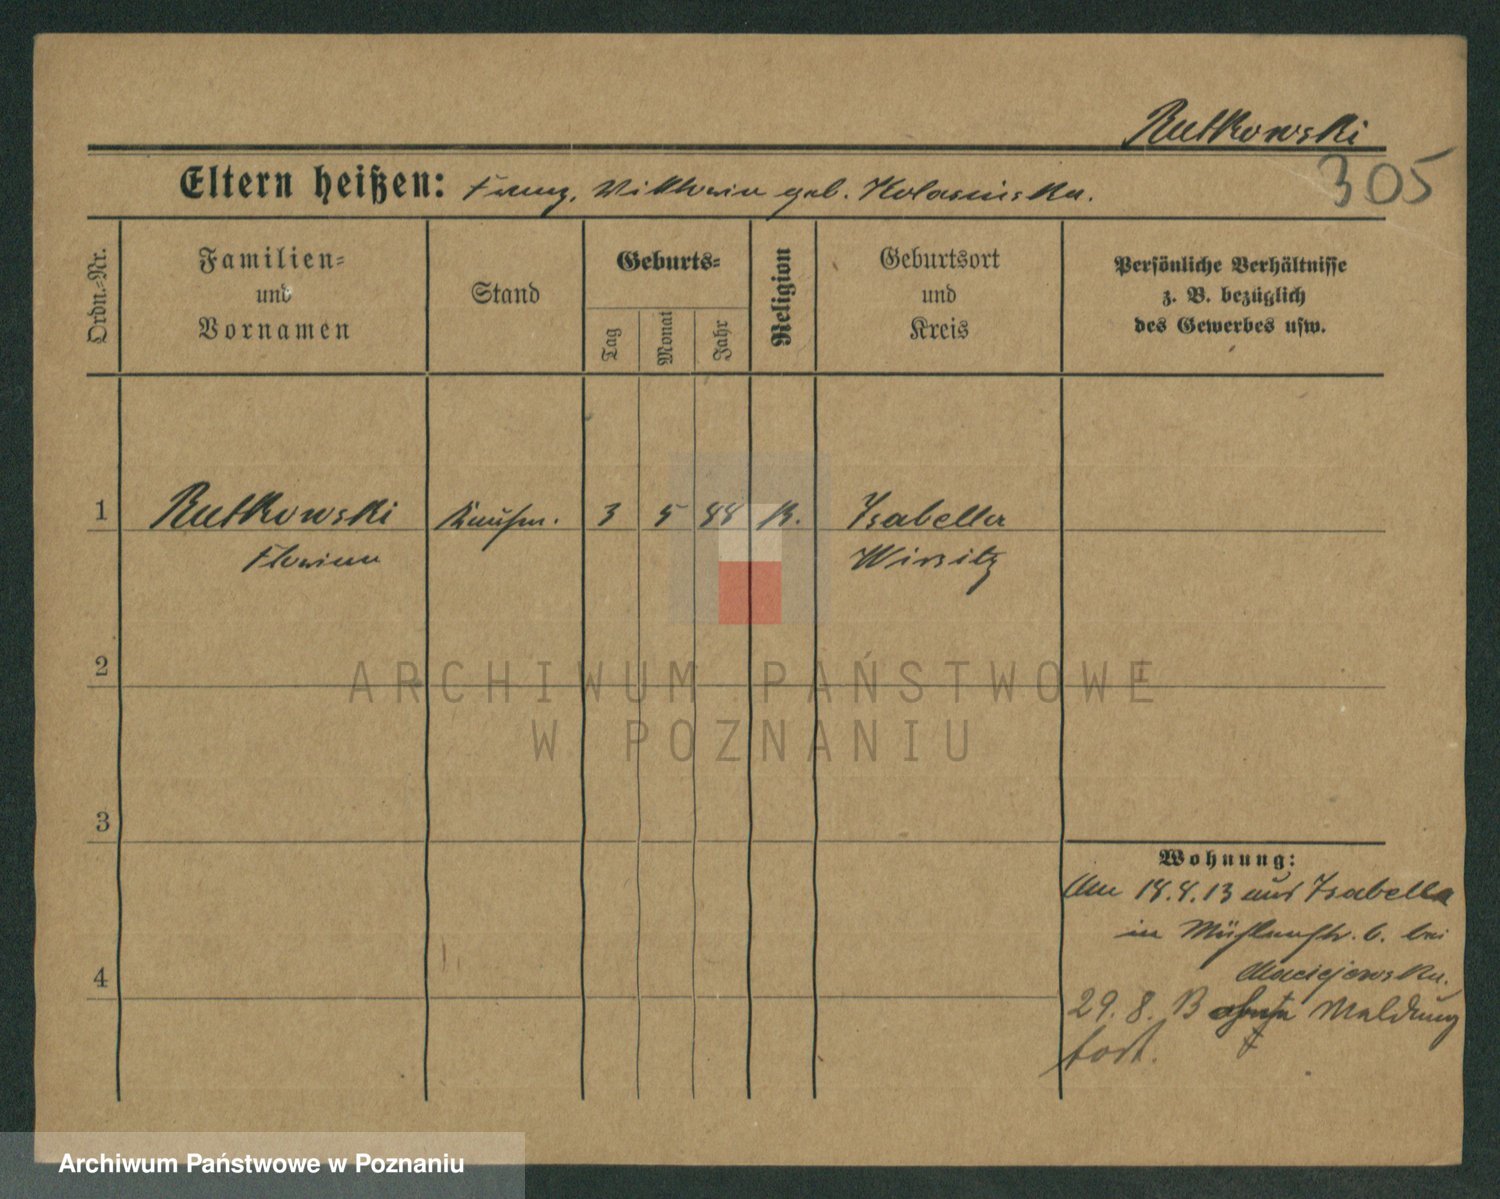 Rutkowski
305
Eltern heißen: Franz, Viktoria geb. Kolasinska.
Ordn.-Nr.
Familien-
und
Vornamen
Stand
Geburts-
Tag
Monat
Jahr
Religion
Geburtsort
und
Kreis
Persönliche Verhältnisse
z. B. bezüglich
des Gewerbes usw.
1 Rutkowski Kaufm. 3 5 88 K. Isabella
Florian Wirsitz
2
ARCHIWUM PAŃSTWOWE
W POZNANIU
3
Wohnung:
Am 18.8.13 aus Isabella
in Mühlenstr. 6. bei
Maciejewska.
4
29. 8. 13 ohne Meldung
fort.
Archiwum Państwowe w Poznaniu